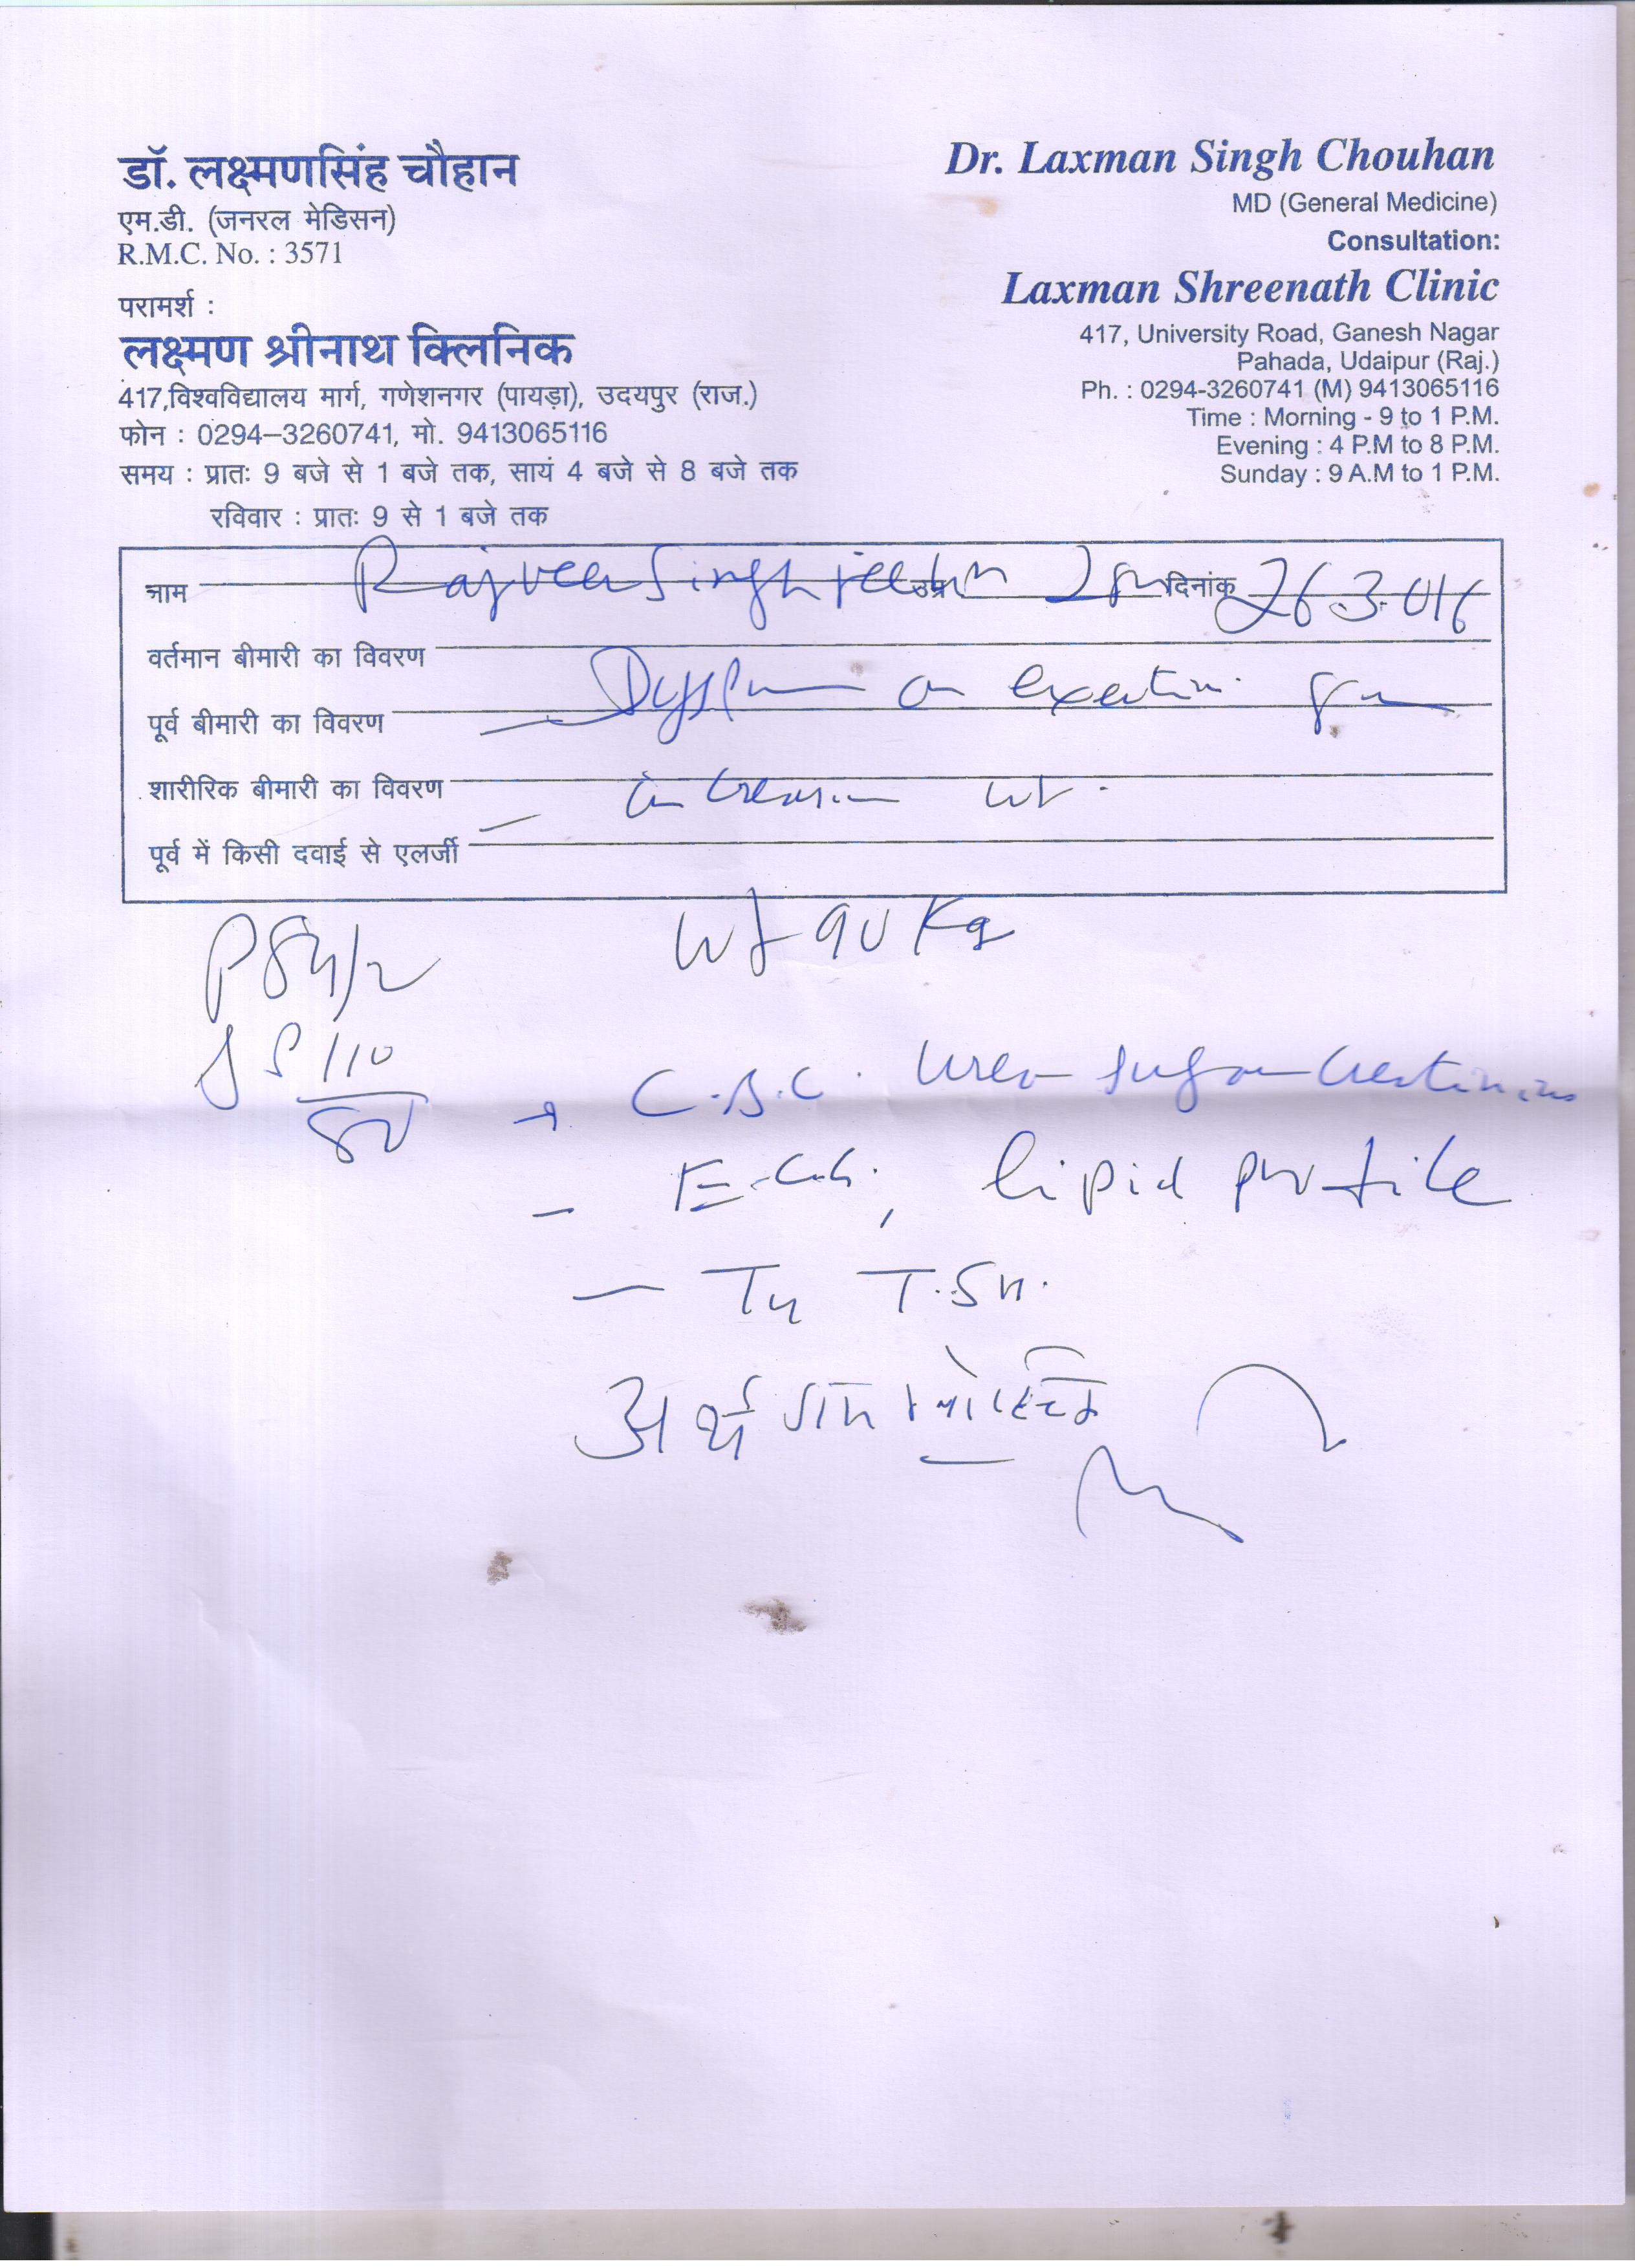 डॉ. लक्ष्मणसिंह चौहान
एम.डी. (जनरल मेडिसन)
R.M.C. No. : 3571
परामर्श :
लक्ष्मण श्रीनाथ क्लिनिक
417,विश्वविद्यालय मार्ग, गणेशनगर (पायड़ा), उदयपुर (राज.)
फोन : 0294–3260741, मो. 9413065116
समय : प्रातः 9 बजे से 1 बजे तक, सायं 4 बजे से 8 बजे तक
रविवार : प्रातः 9 से 1 बजे तक
Dr. Laxman Singh Chouhan
MD (General Medicine)
Consultation:
Laxman Shreenath Clinic
417, University Road, Ganesh Nagar
Pahada, Udaipur (Raj.)
Ph. : 0294-3260741 (M) 9413065116
Time : Morning - 9 to 1 P.M.
Evening : 4 P.M to 8 P.M.
Sunday : 9 A.M to 1 P.M.
नाम Rajveer Singh उम्र दिनांक 26.3.016
वर्तमान बीमारी का विवरण
on exertion
पूर्व बीमारी का विवरण
शारीरिक बीमारी का विवरण wt.
पूर्व में किसी दवाई से एलर्जी
P 84/2 Wt 90 Kg
110
80
→ C.B.C. Urea Sugar Creatinine
- E.C.G., lipid profile
- T4 T.S.H.